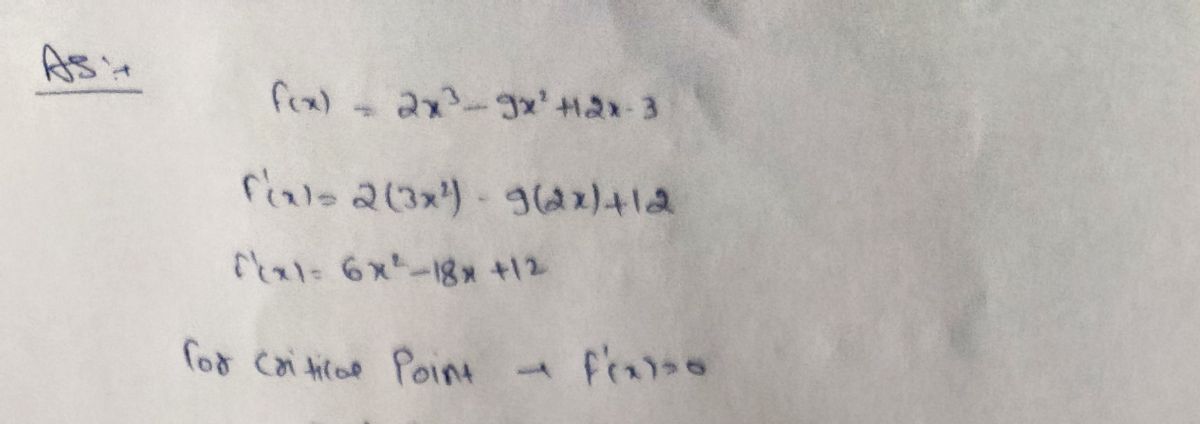 A5:→
f(x) = 2x³ - 9x² + 12x - 3
f'(x) = 2(3x²) - 9(2x) + 12
f'(x) = 6x² - 18x + 12
for critical Point → f'(x) = 0